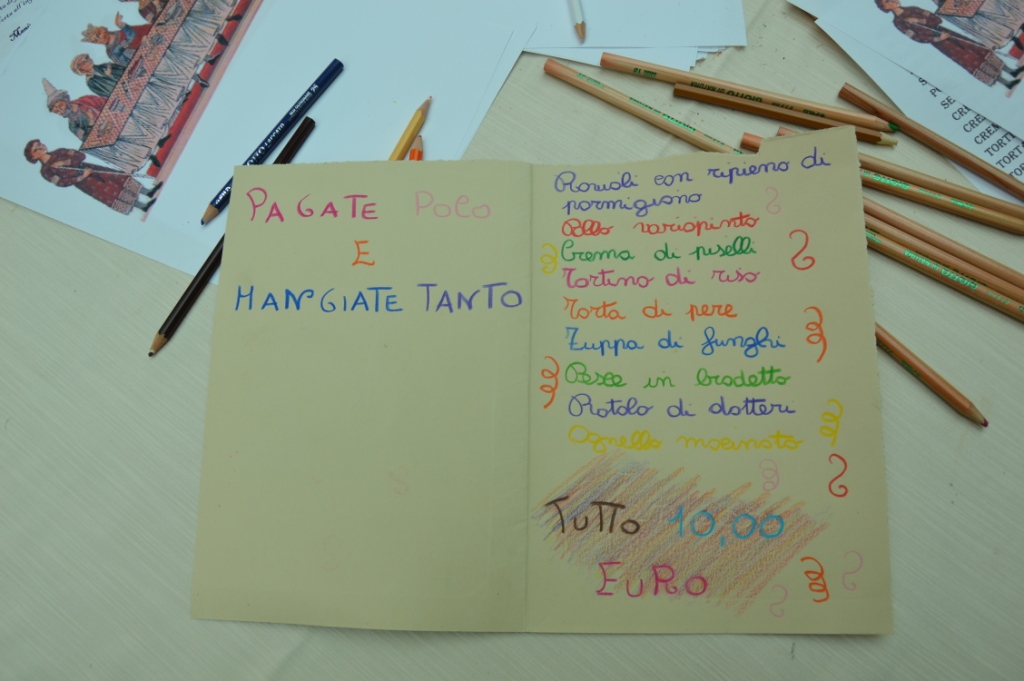 PAGATE POCO
E
MANGIATE TANTO
Ravioli con ripieno di
parmigiano
Pollo variopinto
Crema di piselli
Tortino di riso
Torta di pere
Zuppa di funghi
Pesce in brodetto
Rotolo di datteri
Agnello macinato
TUTTO 10,00
EURO